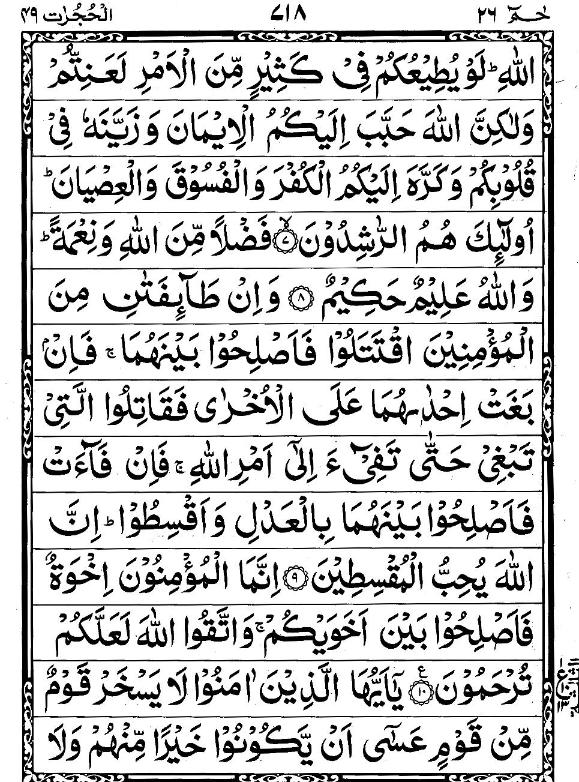 حٰمٓ ٢٦ ٧١٨ الْحُجُرٰت ٤٩
اللّٰهِ ؕ لَوْ يُطِيْعُكُمْ فِىْ كَثِيْرٍ مِّنَ الْاَمْرِ لَعَنِتُّمْ
وَلٰكِنَّ اللّٰهَ حَبَّبَ اِلَيْكُمُ الْاِيْمَانَ وَ زَيَّنَهٗ فِىْ
قُلُوْبِكُمْ وَ كَرَّهَ اِلَيْكُمُ الْكُفْرَ وَ الْفُسُوْقَ وَ الْعِصْيَانَ ؕ
اُولٰٓئِكَ هُمُ الرّٰشِدُوْنَ ۙ‏﴿٧﴾ فَضْلًا مِّنَ اللّٰهِ وَ نِعْمَةً ؕ
وَ اللّٰهُ عَلِيْمٌ حَكِيْمٌ ﴿٨﴾ وَ اِنْ طَآئِفَتٰنِ مِنَ
الْمُؤْمِنِيْنَ اقْتَتَلُوْا فَاَصْلِحُوْا بَيْنَهُمَا ۚ فَاِنْۢ
بَغَتْ اِحْدٰىهُمَا عَلَى الْاُخْرٰى فَقَاتِلُوا الَّتِىْ
تَبْغِىْ حَتّٰى تَفِىْٓءَ اِلٰٓى اَمْرِ اللّٰهِ ۚ فَاِنْ فَآءَتْ
فَاَصْلِحُوْا بَيْنَهُمَا بِالْعَدْلِ وَ اَقْسِطُوْا ؕ اِنَّ
اللّٰهَ يُحِبُّ الْمُقْسِطِيْنَ ﴿٩﴾ اِنَّمَا الْمُؤْمِنُوْنَ اِخْوَةٌ
فَاَصْلِحُوْا بَيْنَ اَخَوَيْكُمْ ۚ وَ اتَّقُوا اللّٰهَ لَعَلَّكُمْ
تُرْحَمُوْنَ ﴿١٠﴾ ع يٰٓاَيُّهَا الَّذِيْنَ اٰمَنُوْا لَا يَسْخَرْ قَوْمٌ
مِّنْ قَوْمٍ عَسٰٓى اَنْ يَّكُوْنُوْا خَيْرًا مِّنْهُمْ وَلَا